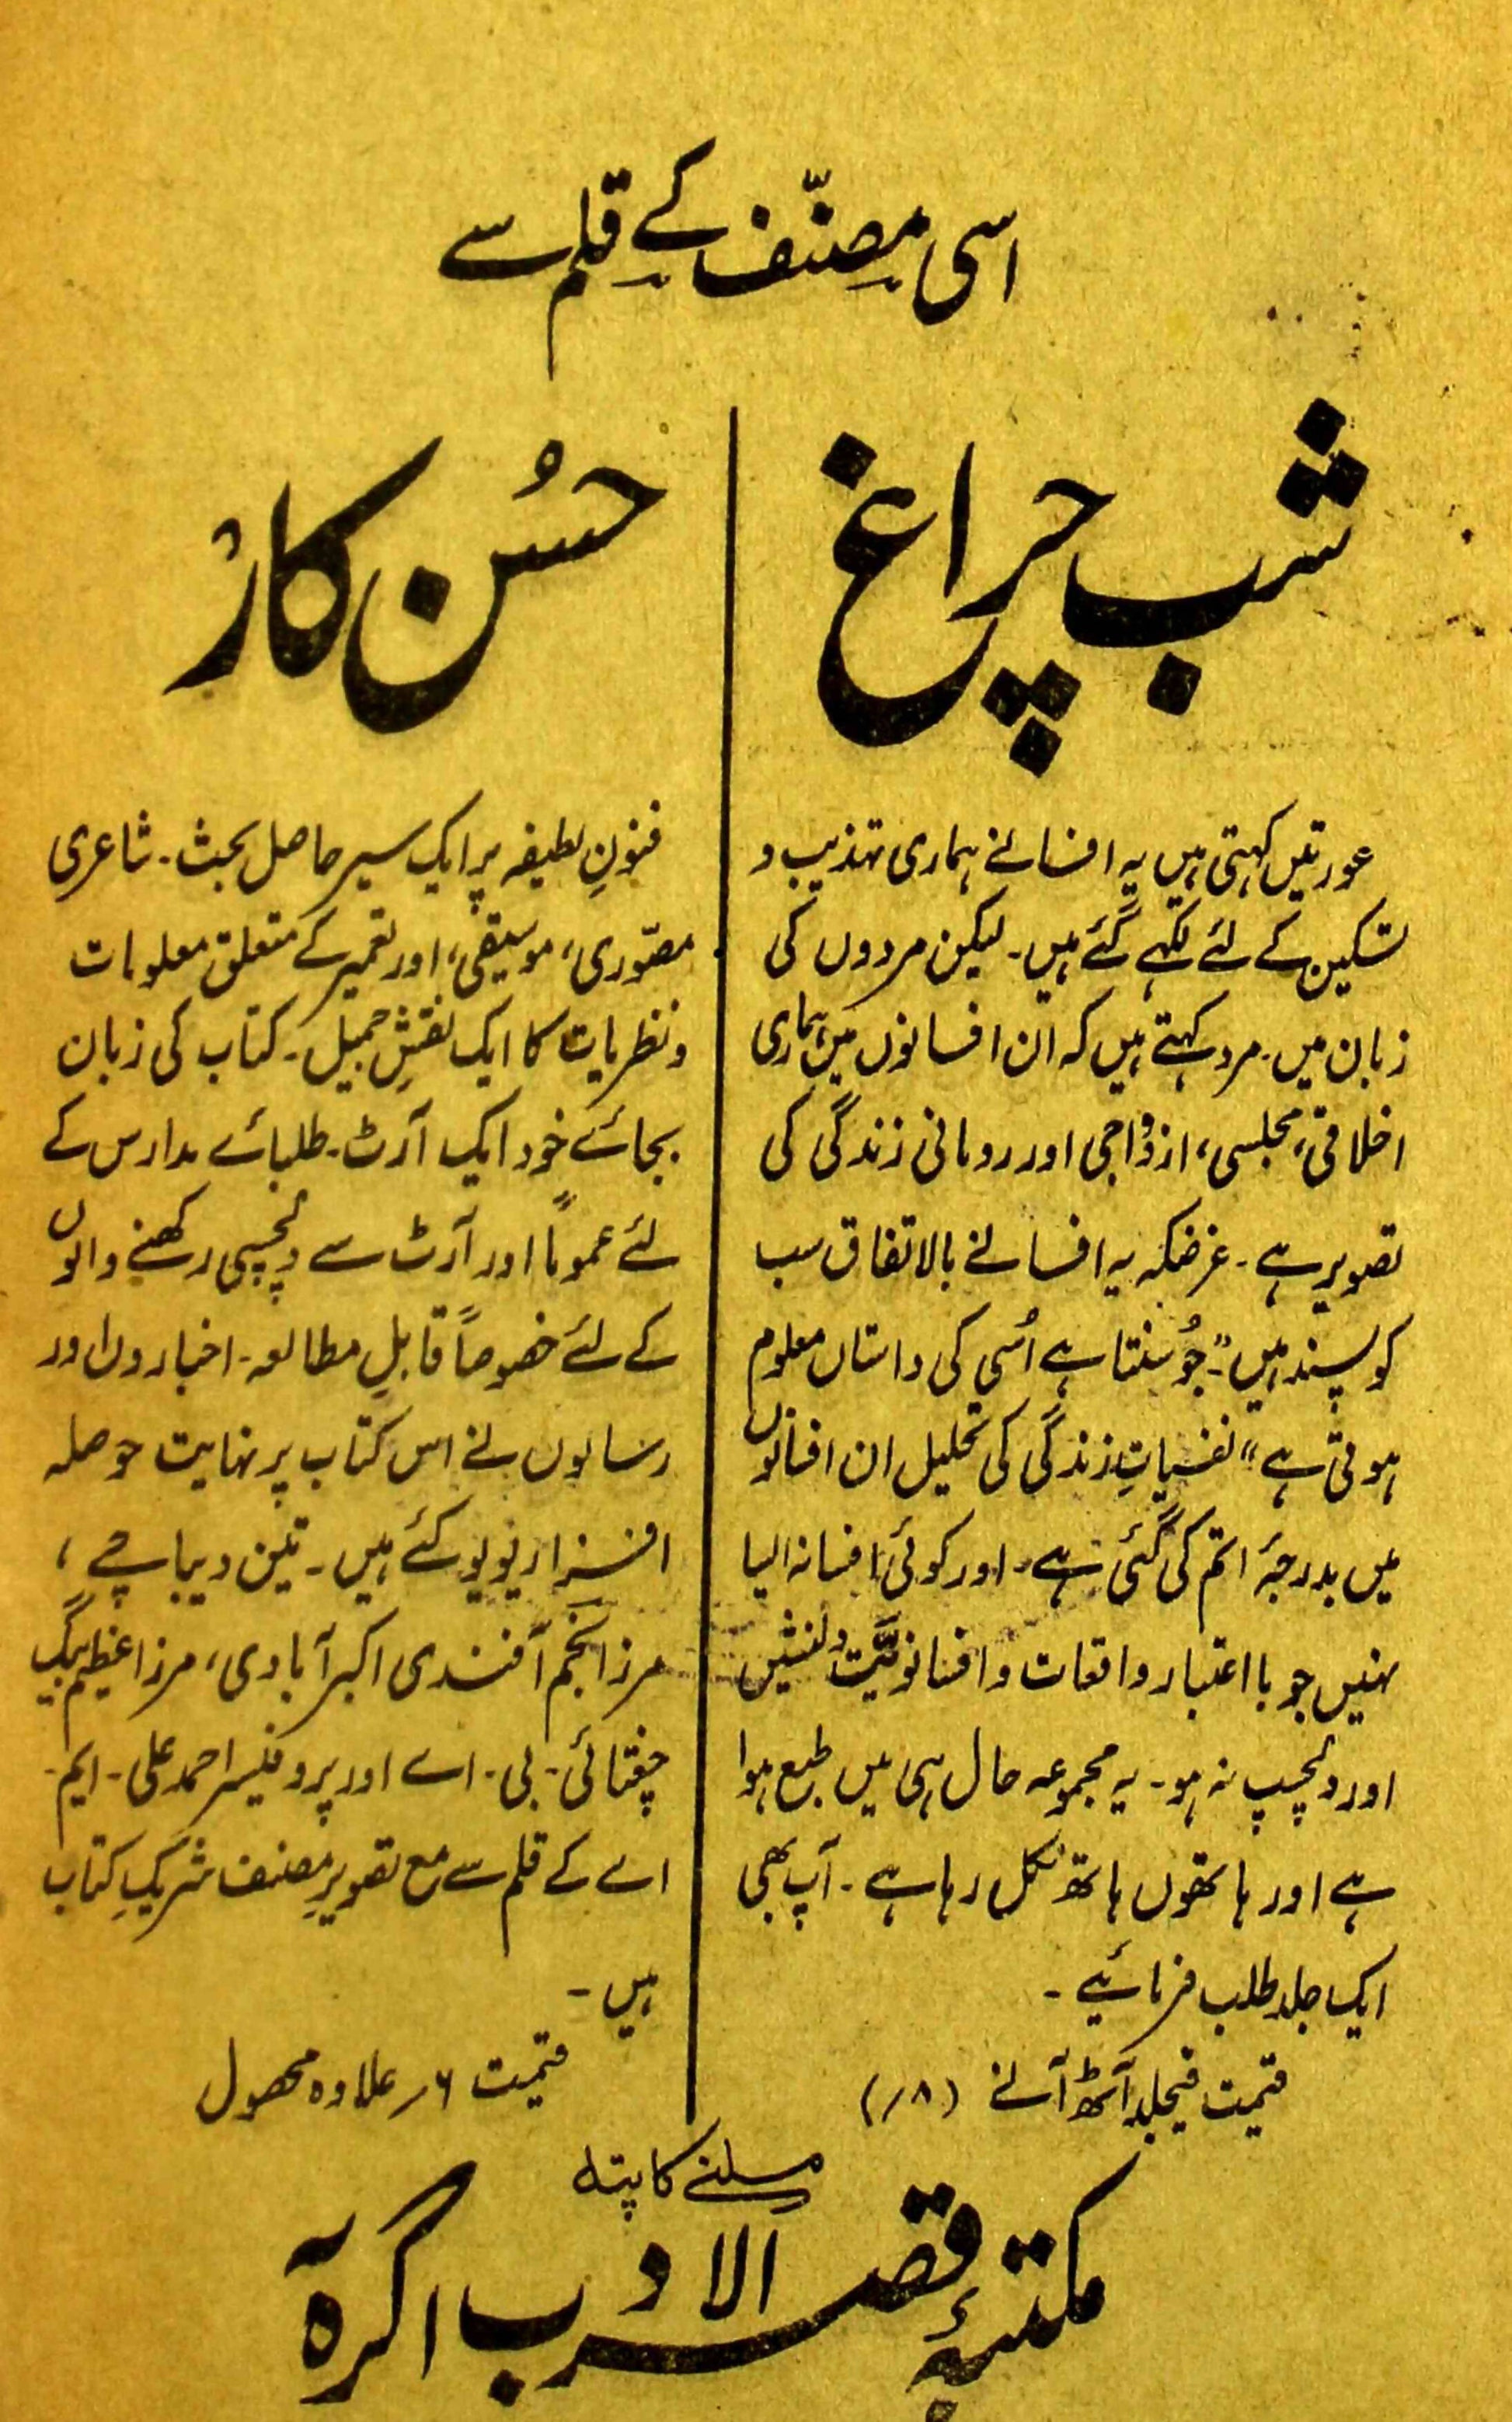 اسی مصنّف کے قلم سے
شب چراغ
عورتیں کہتی ہیں یہ افسانے ہماری تہذیب و
تسکین کے لئے لکھے گئے ہیں۔ لیکن مردوں کی
زبان میں۔ مرد کہتے ہیں کہ ان افسانوں میں ہماری
اخلاقی، مجلسی، ازدواجی اور رومانی زندگی کی
تصویر ہے۔ غرضکہ یہ افسانے بالاتفاق سب
کو پسند ہیں۔ "جو سنتا ہے اُسی کی داستاں معلوم
ہوتی ہے" نفسیاتِ زندگی کی تحلیل ان افسانوں
میں بدرجۂ اتم کی گئی ہے۔ اور کوئی افسانہ ایسا
نہیں جو بااعتبار واقعات و افسانویّت دلنشیں
اور دلچسپ نہ ہو۔ یہ مجموعہ حال ہی میں طبع ہوا
ہے اور ہاتھوں ہاتھ نکل رہا ہے۔ آپ بھی
ایک جلد طلب فرمائیے۔
قیمت فیجلد آٹھ آنے (۸؍)
حُسن کار
فنونِ لطیفہ پر ایک سیر حاصل بحث۔ شاعری
مصّوری، موسیقی، اور تعمیر کے متعلق معلومات
و نظریات کا ایک نقشِ جمیل۔ کتاب کی زبان
بجائے خود ایک آرٹ۔ طلبائے مدارس کے
لئے عموماً اور آرٹ سے دلچسپی رکھنے والوں
کے لئے خصوصاً قابلِ مطالعہ۔ اخباروں اور
رسالوں نے اس کتاب پر نہایت حوصلہ
افزا ریویو کئے ہیں۔ تین دیباچے،
مرزا نجم آفندی اکبرآبادی، مرزا عظیم بیگ
چغتائی۔ بی۔ اے اور پروفیسر احمد علی۔ ایم۔
اے کے قلم سے مع تصویرِ مصنف شریکِ کتاب
ہیں۔
قیمت ۶؍ علاوہ محصول
ملنے کا پتہ
مکتبۂ قصر الادب اگرہ